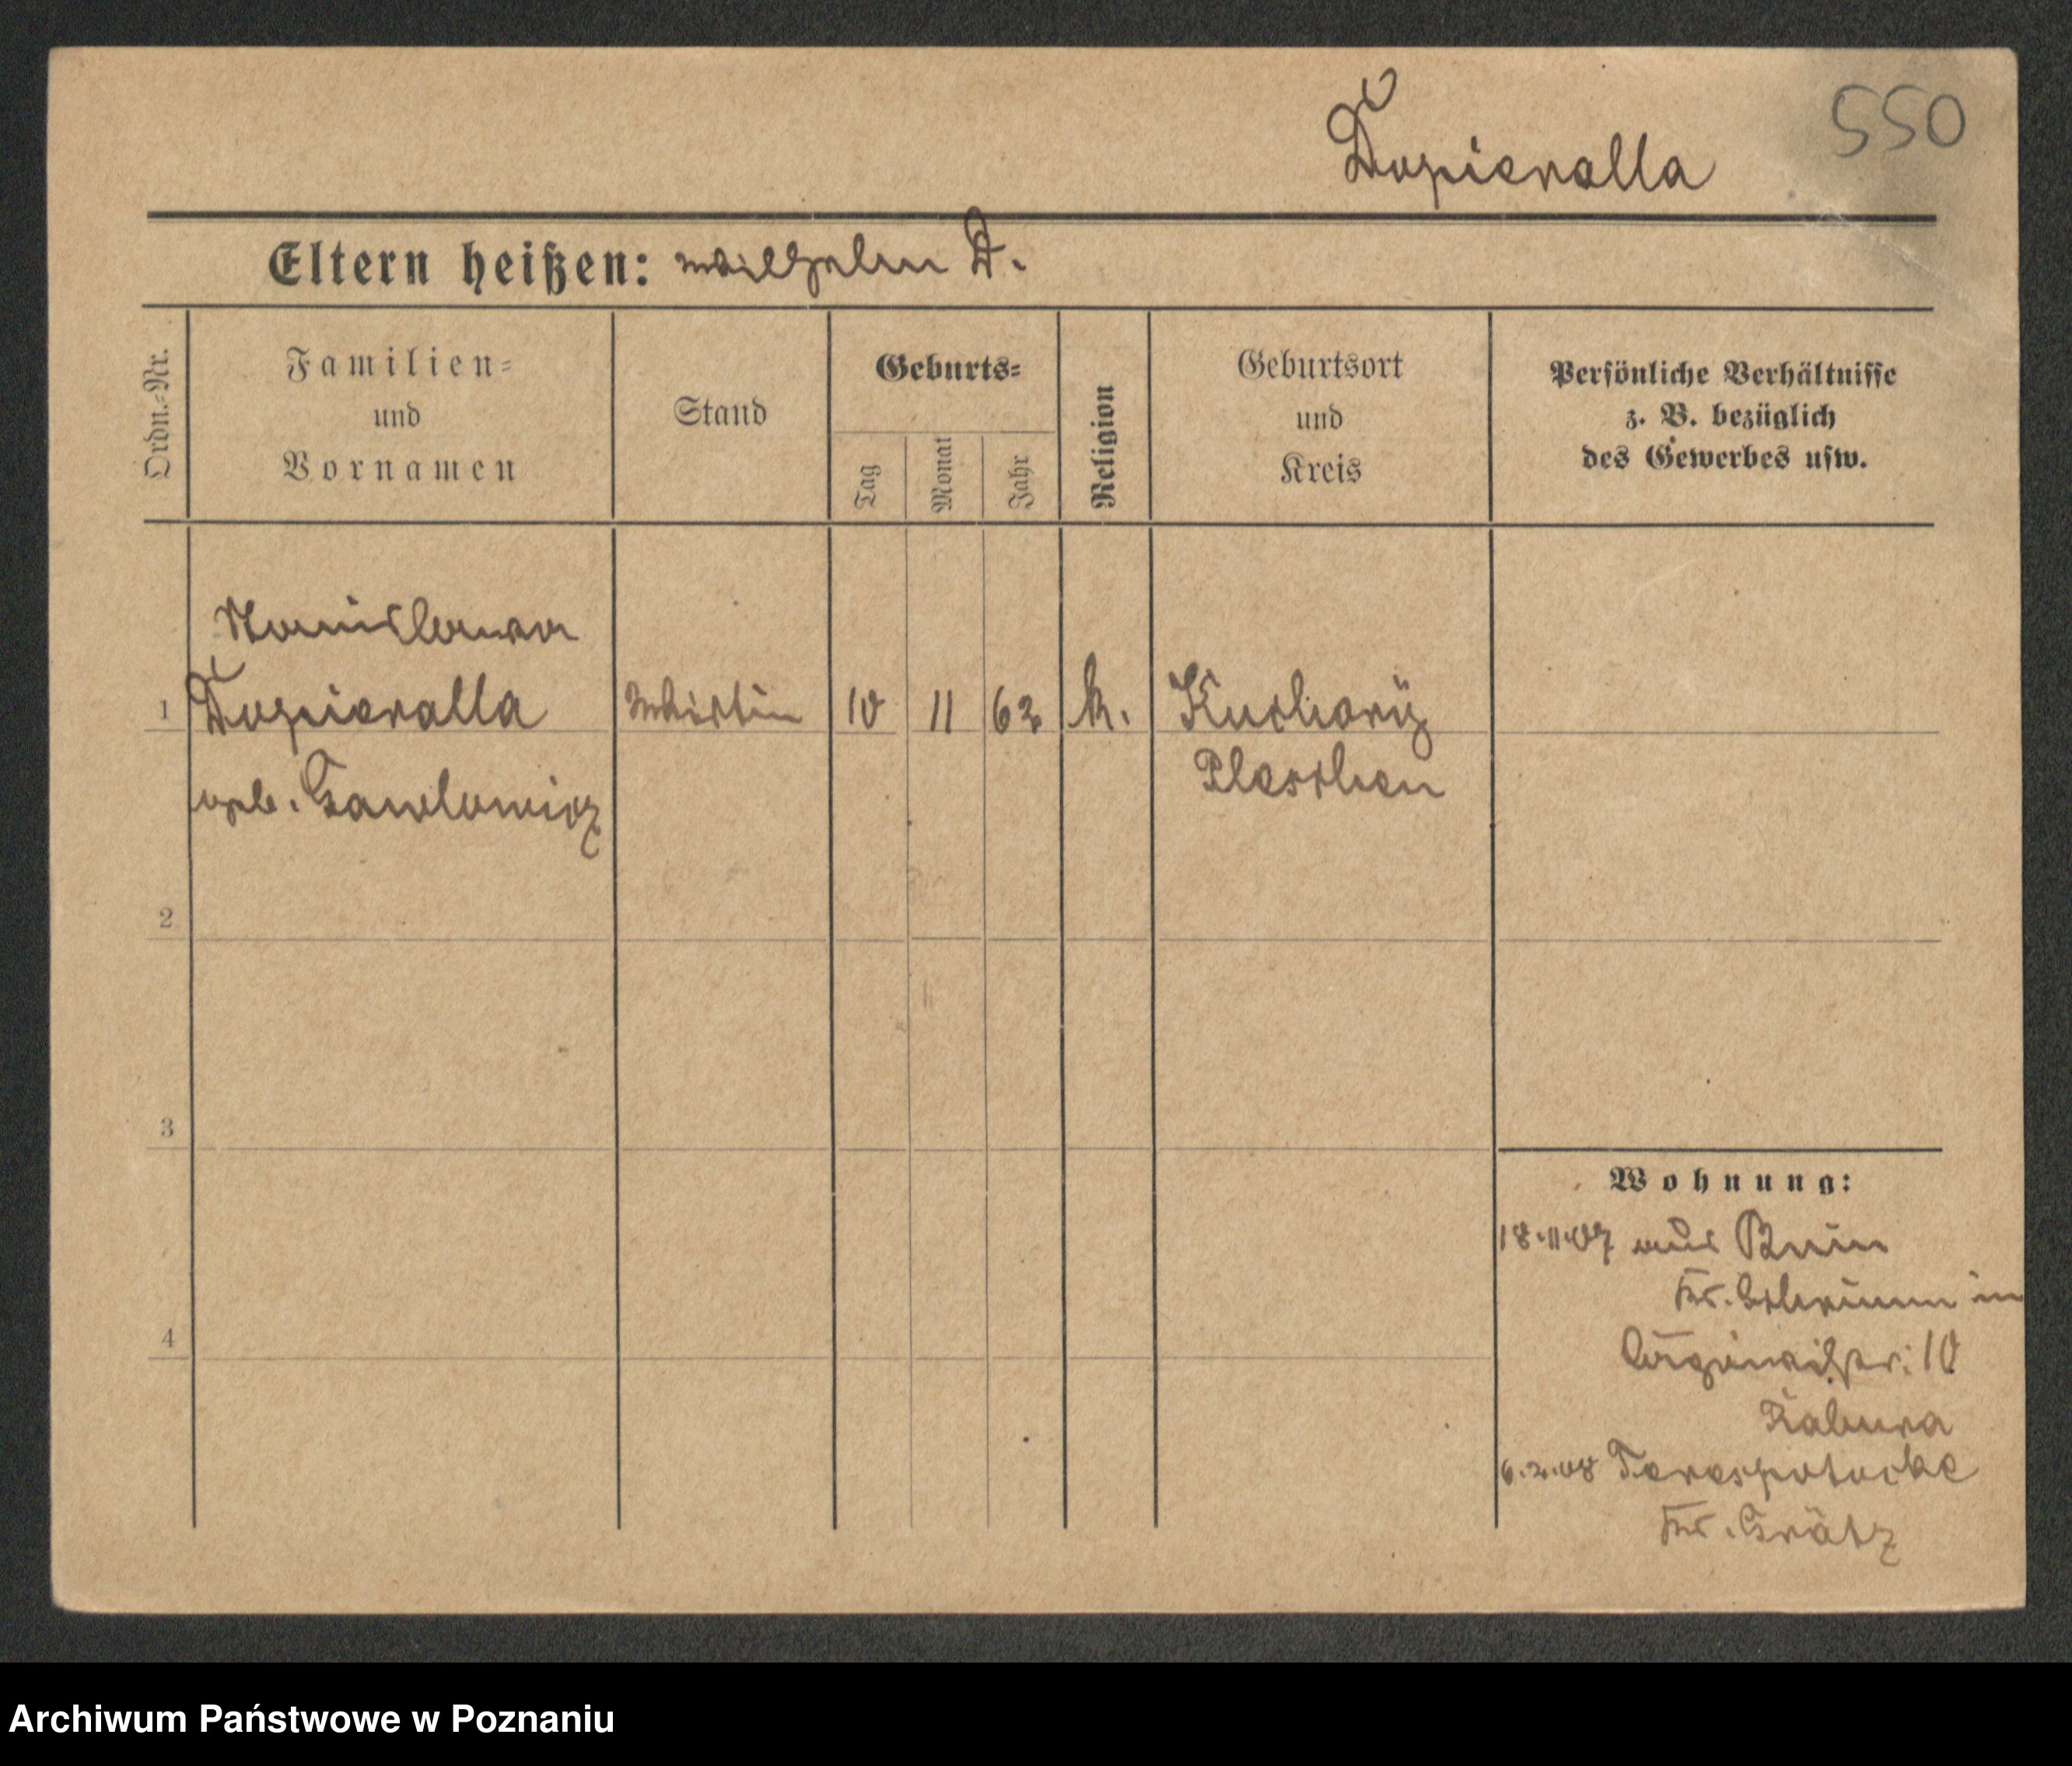 550
Dopieralla
Eltern heißen: Wilhelm D.
Ordn.-Nr.
Familien-
und
Vornamen
Stand
Geburts-
Tag
Monat
Jahr
Religion
Geburtsort
und
Kreis
Persönliche Verhältnisse
z. B. bezüglich
des Gewerbes usw.
Stanislawa
1 Dopieralla Wirtin 10 11 62 k. Kuchary
geb. Gawlowicz Pleschen
2
3
4
Wohnung:
18.11.07 aus Bnin
Kr. Schrimm in
10
6.2.08 Terespotocke
Kr. Grätz
Archiwum Państwowe w Poznaniu